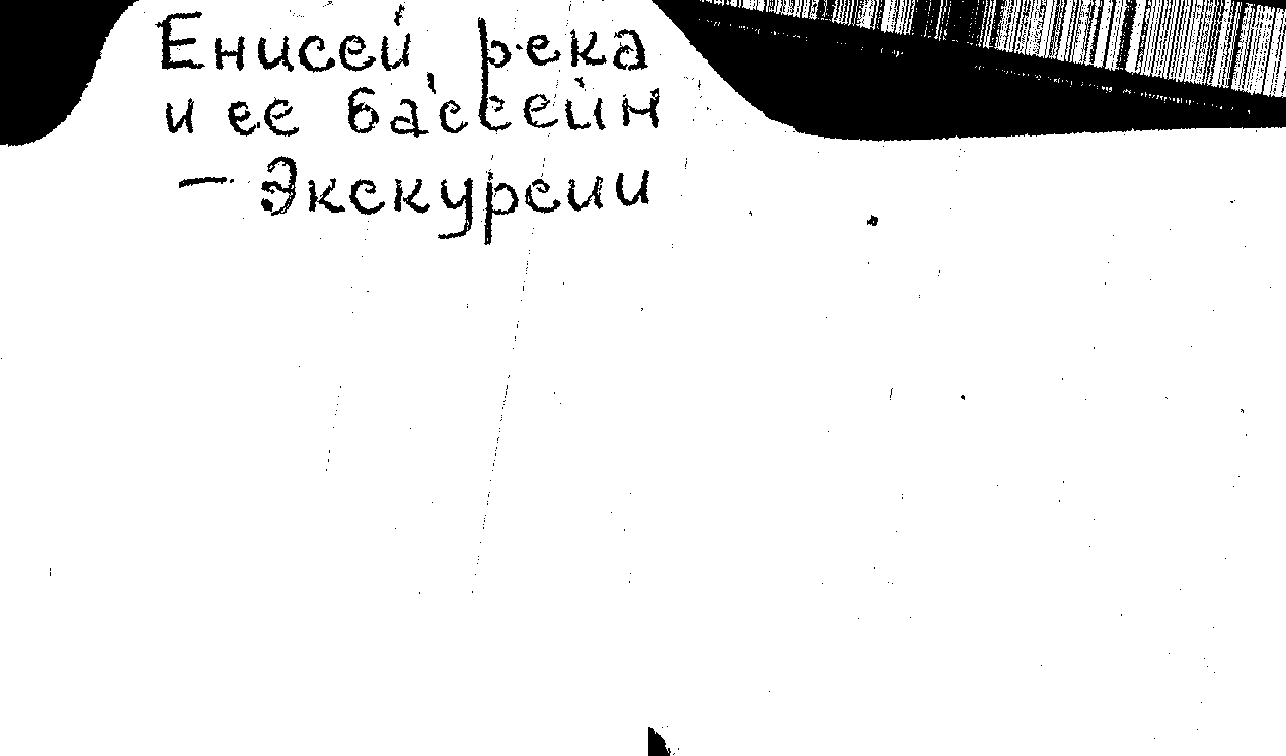 Енисей река
и ее бассейн
— Экскурсии